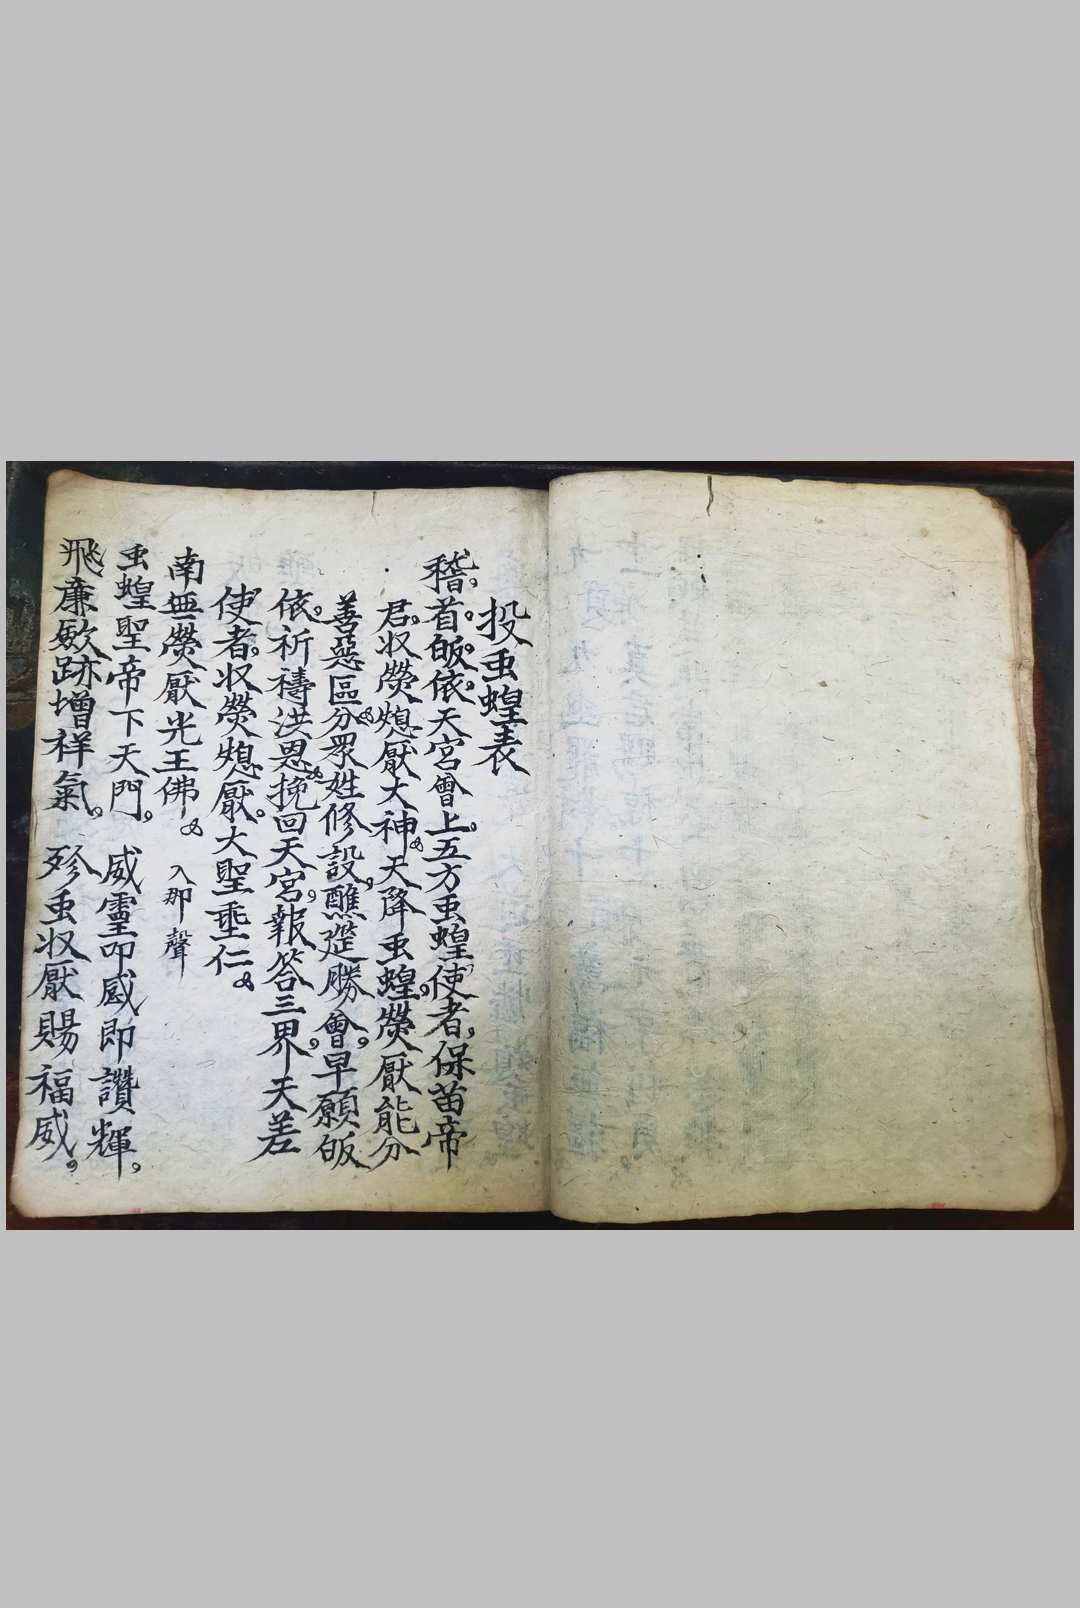 投虫蝗表
稽首皈依天宮會上五方虫蝗使者保苗帝
君収熒熄厭大神天降虫蝗熒厭能分
善惡區分眾姓修設醮筵勝會早願皈
依祈禱洪恩挽回天宮報答三界天差
使者収熒熄厭大聖垂仁
南無熒厭光王佛 入那聲
虫蝗聖帝下天門 威靈叩感即讚輝
飛廉歛跡增祥氣 殄虫収厭賜福威